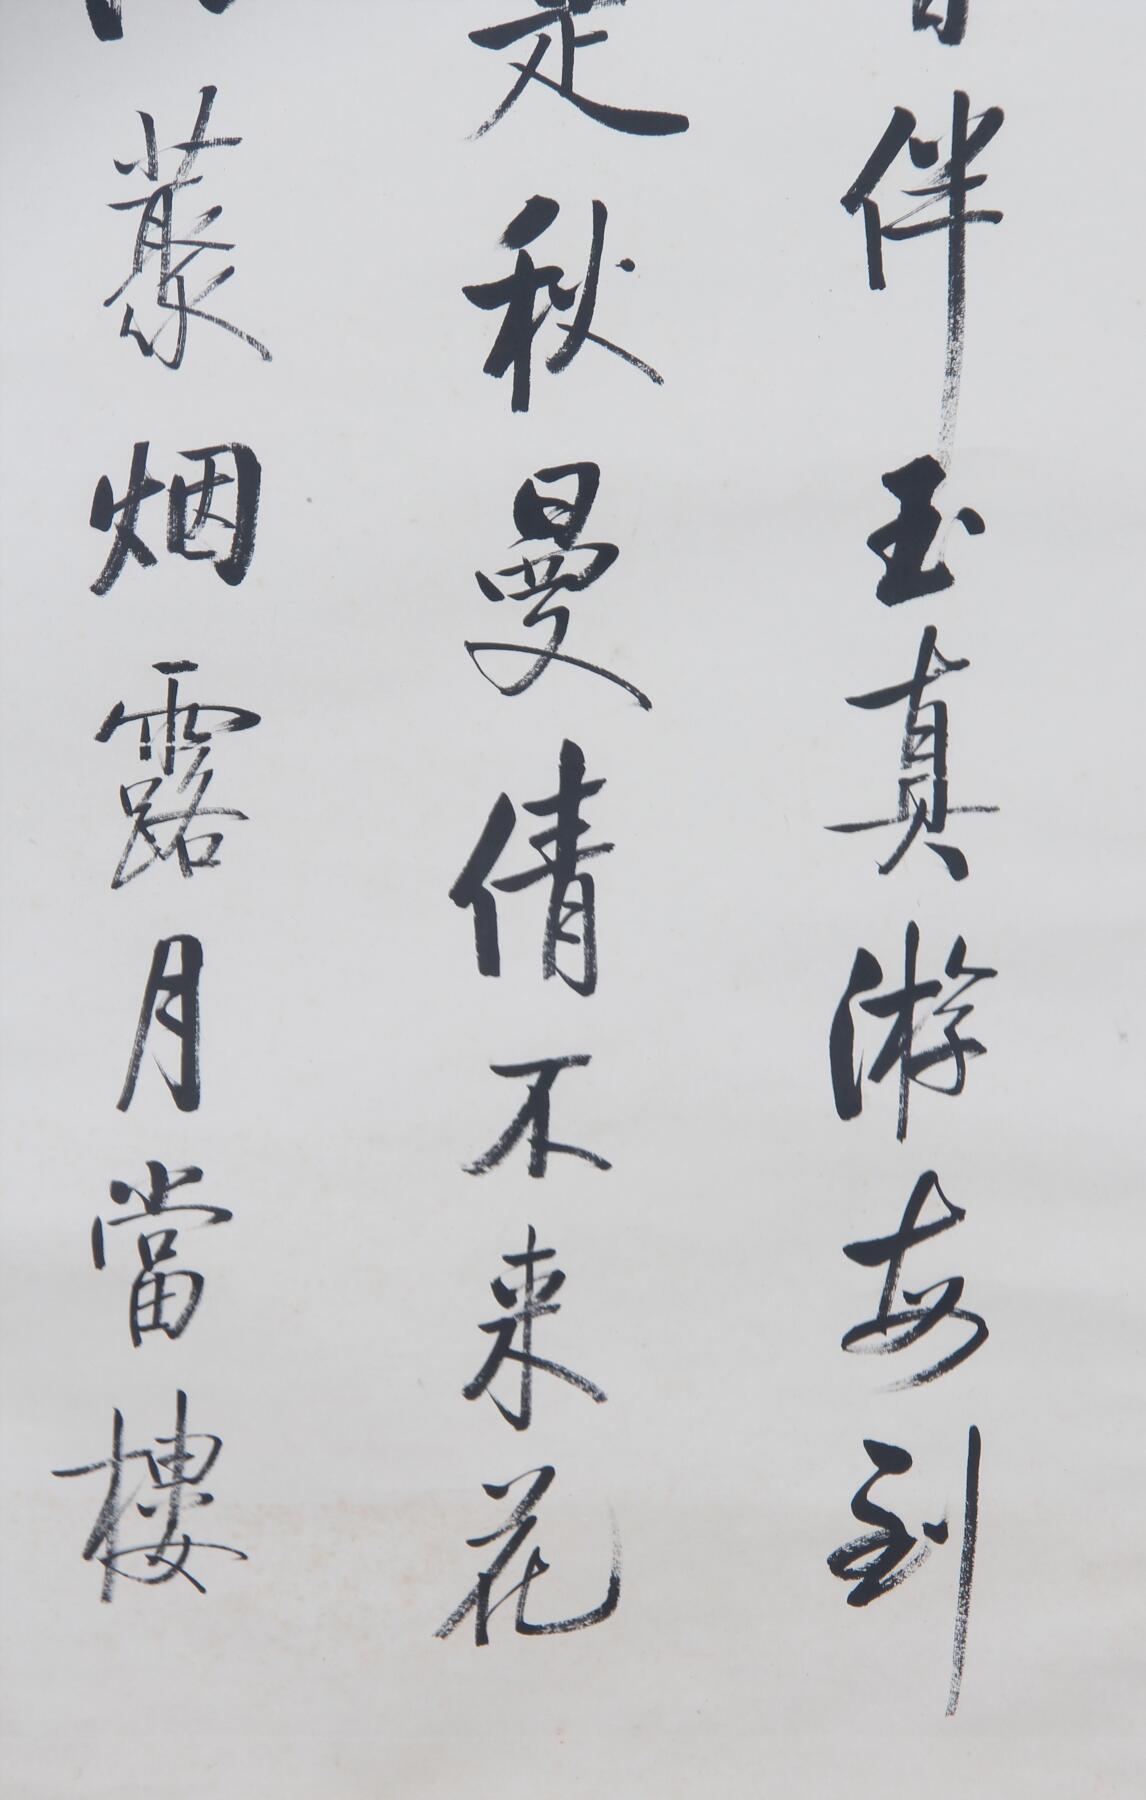 伴玉真游每到
是秋曼倩不来花
藂烟露月當樓